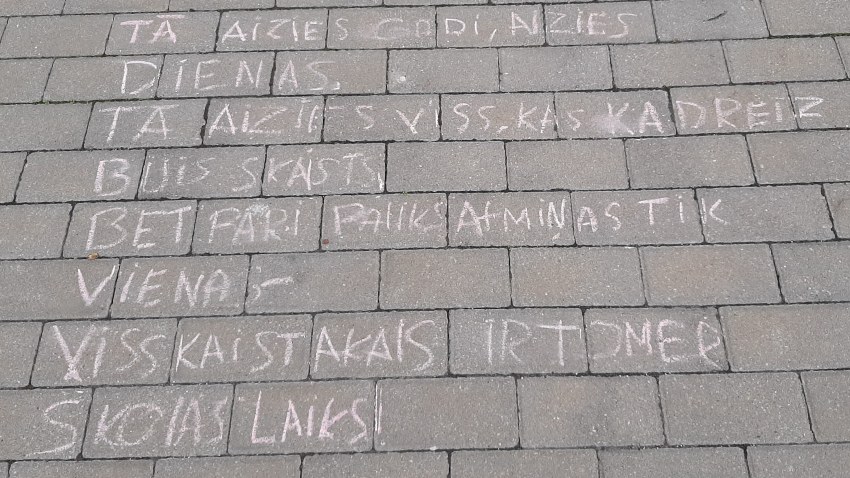 TĀ AIZIES GADI, AIZIES
DIENAS.
TĀ AIZIES VISS, KAS KADREIZ
BIJIS SKAISTS
BET PĀRI PALIKS ATMIŅAS TIK
VIENAS -
VISSKAISTAKAIS IR TOMER
SKOLAS LAIKS!